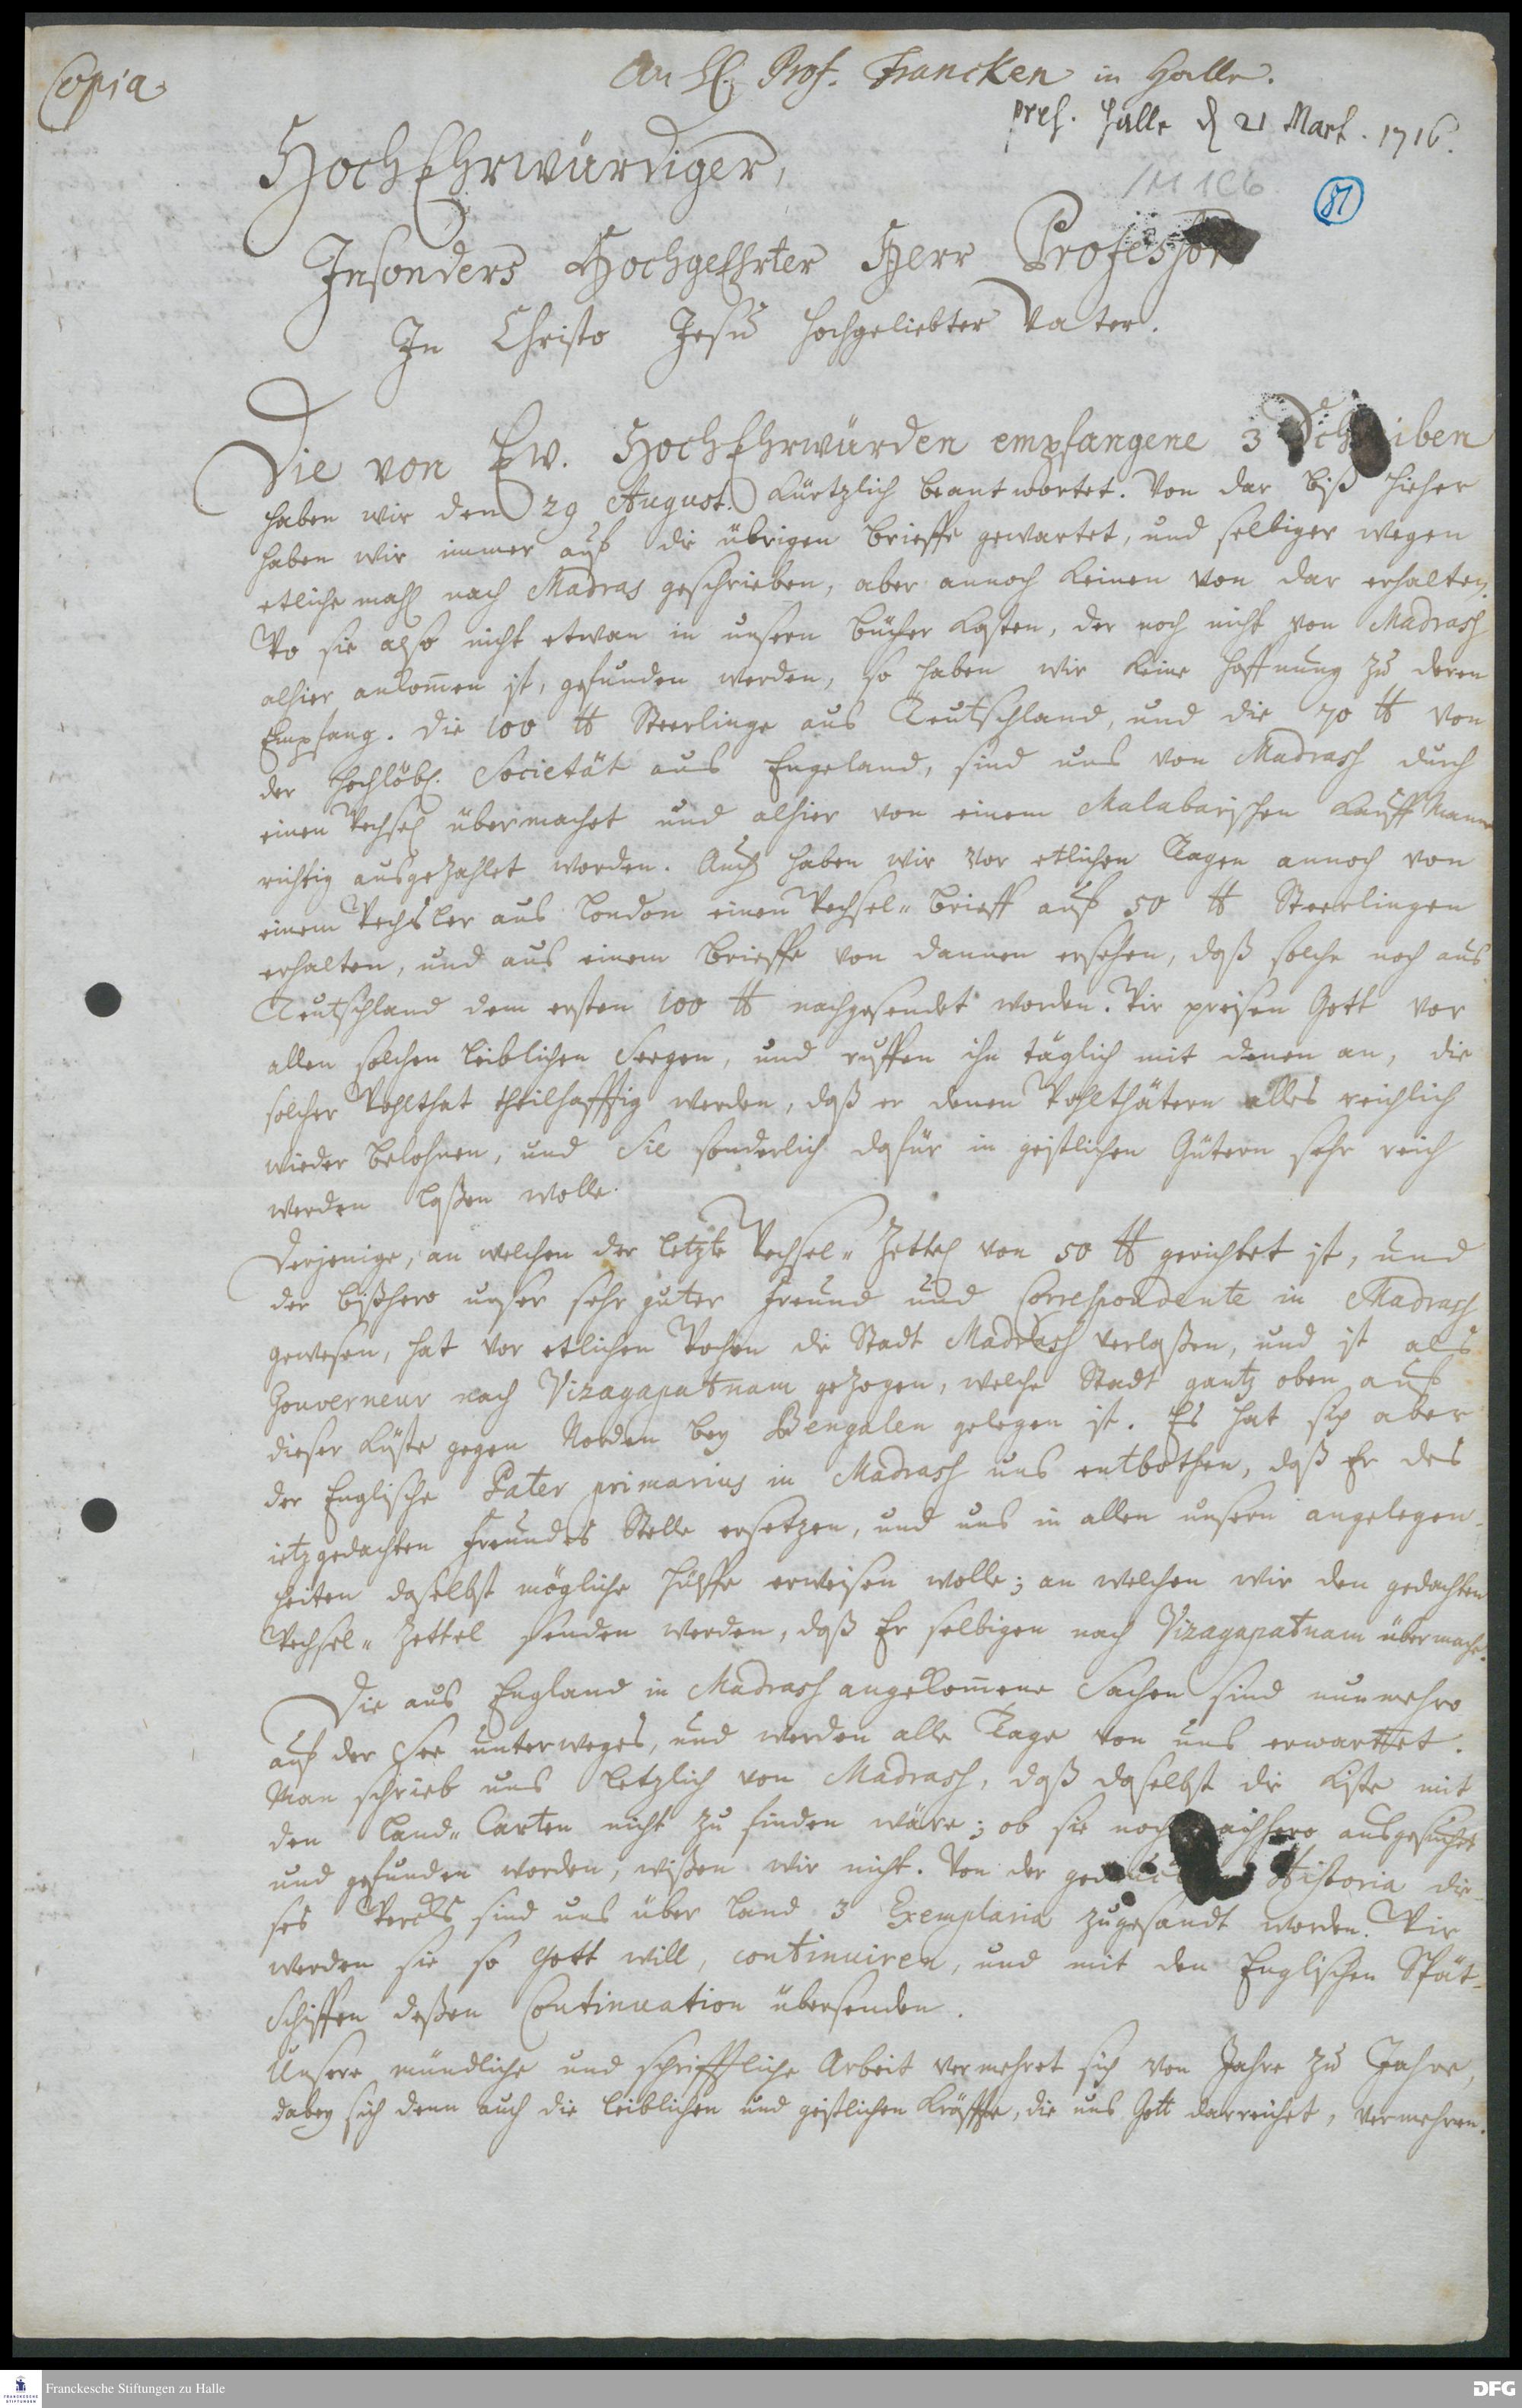 Copia.
An H. Prof. Francken in Halle.
pres. Halle d 21 Mart. 1716.
HochEhrwürdiger,
1M 1C6
87
Insonders HochgeEhrter Herr Professor
In Christo Jesu hochgeliebter Vater.
Die von Ew. HochEhrwürden empfangene 3 Schreiben
haben wir den 29 August. kürtzlich beantwortet. Von dar biß hieher
haben wir immer auf die übrigen brieffe gewartet, und selbiger wegen
etliche mahl nach Madras geschrieben, aber annoch keinen von dar erhalten.
Wo sie also nicht etwan in unsern bücher kasten, der noch nicht von Madrass
alhier ankom̅en ist, gefunden werden, so haben wir keine hoffnung zu deren
Empfang. Die 100 ℔ Steerlinge aus Teutschland, und die 70 ℔ von
der hochlöbl. Societät aus Engeland, sind uns von Madrass durch
einen Wechsel übermachet und alhier von einem Malabarischen kauffMann
richtig ausgezahlet worden. Auch haben wir vor etlichen Tagen annoch von
einem Wechsler aus London einen Wechsel-brieff auf 50 ℔ Steerlingen
erhalten, und aus einem brieffe von dannen ersehen, daß solche noch aus
Teutschland dem ersten 100 ℔ nachgesendet worden. Wir preisen Gott vor
allen solchen leiblichen Seegen, und ruffen ihn täglich mit denen an, die
solcher Wohlthat theilhafftig werden, daß er denen Wohlthätern alles reichlich
wieder belohnen, und Sie sonderlich dafür in geistlichen Gütern sehr reich
werden laßen wolle.
Derjenige, an welchen der letzte Wechsel-Zettel von 50 ℔ gerichtet ist, und
der bißhero unser sehr guter Freund und Correspondente in Madrass
gewesen, hat vor etlichen Wochen die Stadt Madrass verlaßen, und ist als
Gouverneur nach Vizagapatnam gezogen, welche Stadt gantz oben auf
dieser Küste gegen Norden bey Bengalen gelegen ist. Es hat sich aber
der Englische Pater primarius in Madrass uns entbothen, daß Er des
ietzgedachten Freundes Stelle ersetzen, und uns in allen unsern angelegen-
heiten daselbst mögliche hülffe erweisen wolle; an welchen wir den gedachten
Wechsel-Zettel senden werden, daß Er selbigen nach Vizagapatnam übermache.
Die aus England in Madrass angekom̅ene Sachen sind nunmehro
auf der See unterweges, und werden alle Tage von uns erwartet.
Man schrieb uns letzlich von Madrass, daß daselbst die Kiste mit
den Land-Carten nicht zu finden wäre; ob sie noch nachhero ausgesuchet
und gefunden worden, wißen wir nicht. Von der Historia die-
ses Wercks sind uns über Land 3 Exemplaria zugesandt worden. Wir
werden sie so Gott will, continuiren, und mit den Englischen Spät-
Schiffen deßen Continuation übersenden.
Unsere mündliche und schrifftliche Arbeit vermehret sich von Jahre zu Jahre,
dabey sich denn auch die leiblichen und geistlichen Kräffte, die uns Gott darreichet, vermehren.
Franckesche Stiftungen zu Halle
DFG